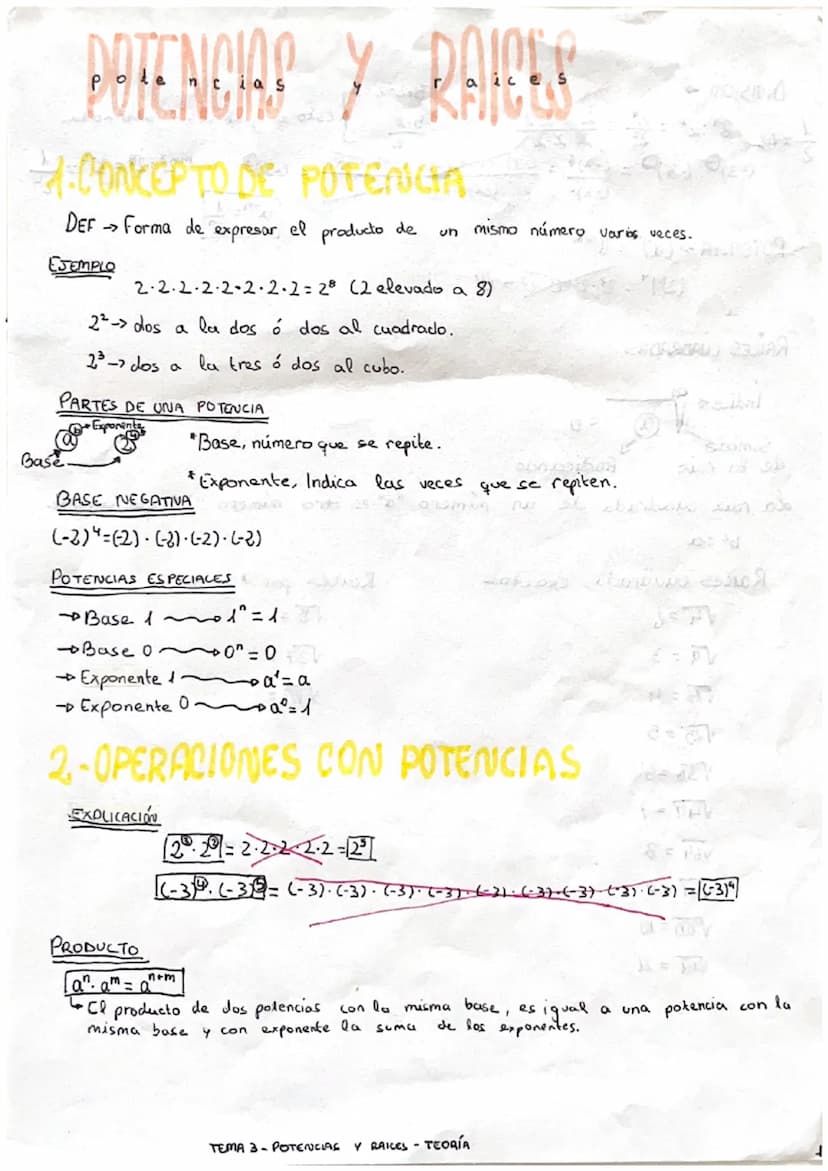 POTENCIAS Y RAICES
potencias y raices
1.CONCEPTO DE POTENCIA
DEF → Forma de expresar el producto de un mismo número varias veces.
EJEMPLO
2·2·2·2·2·2·2·2=2⁸ (2 elevado a 8)
2²→ dos a la dos ó dos al cuadrado.
2³→ dos a la tres ó dos al cubo.
PARTES DE UNA POTENCIA
Exponente
Base
*Base, número que se repite.
*Exponente, Indica las veces que se repiten.
BASE NEGATIVA
(-2)⁴=(-2)·(-2)·(-2)·(-2)
POTENCIAS ESPECIALES
→Base 1 → 1ⁿ=1
→Base 0 → 0ⁿ=0
→Exponente 1 → a¹=a
→Exponente 0 → a⁰=1
2.-OPERACIONES CON POTENCIAS
EXPLICACIÓN
= 2·2·2·2·2 =
= (-3)·(-3)·(-3)·(-3)·(-3)·(-3)·(-3)·(-3)·(-3) =
PRODUCTO
aⁿ·aᵐ=aⁿ⁺ᵐ
El producto de dos potencias con la misma base, es igual a una potencia con la
misma base y con exponente la suma de los exponentes.
TEMA 3 - POTENCIAS Y RAICES - TEORÍA
1